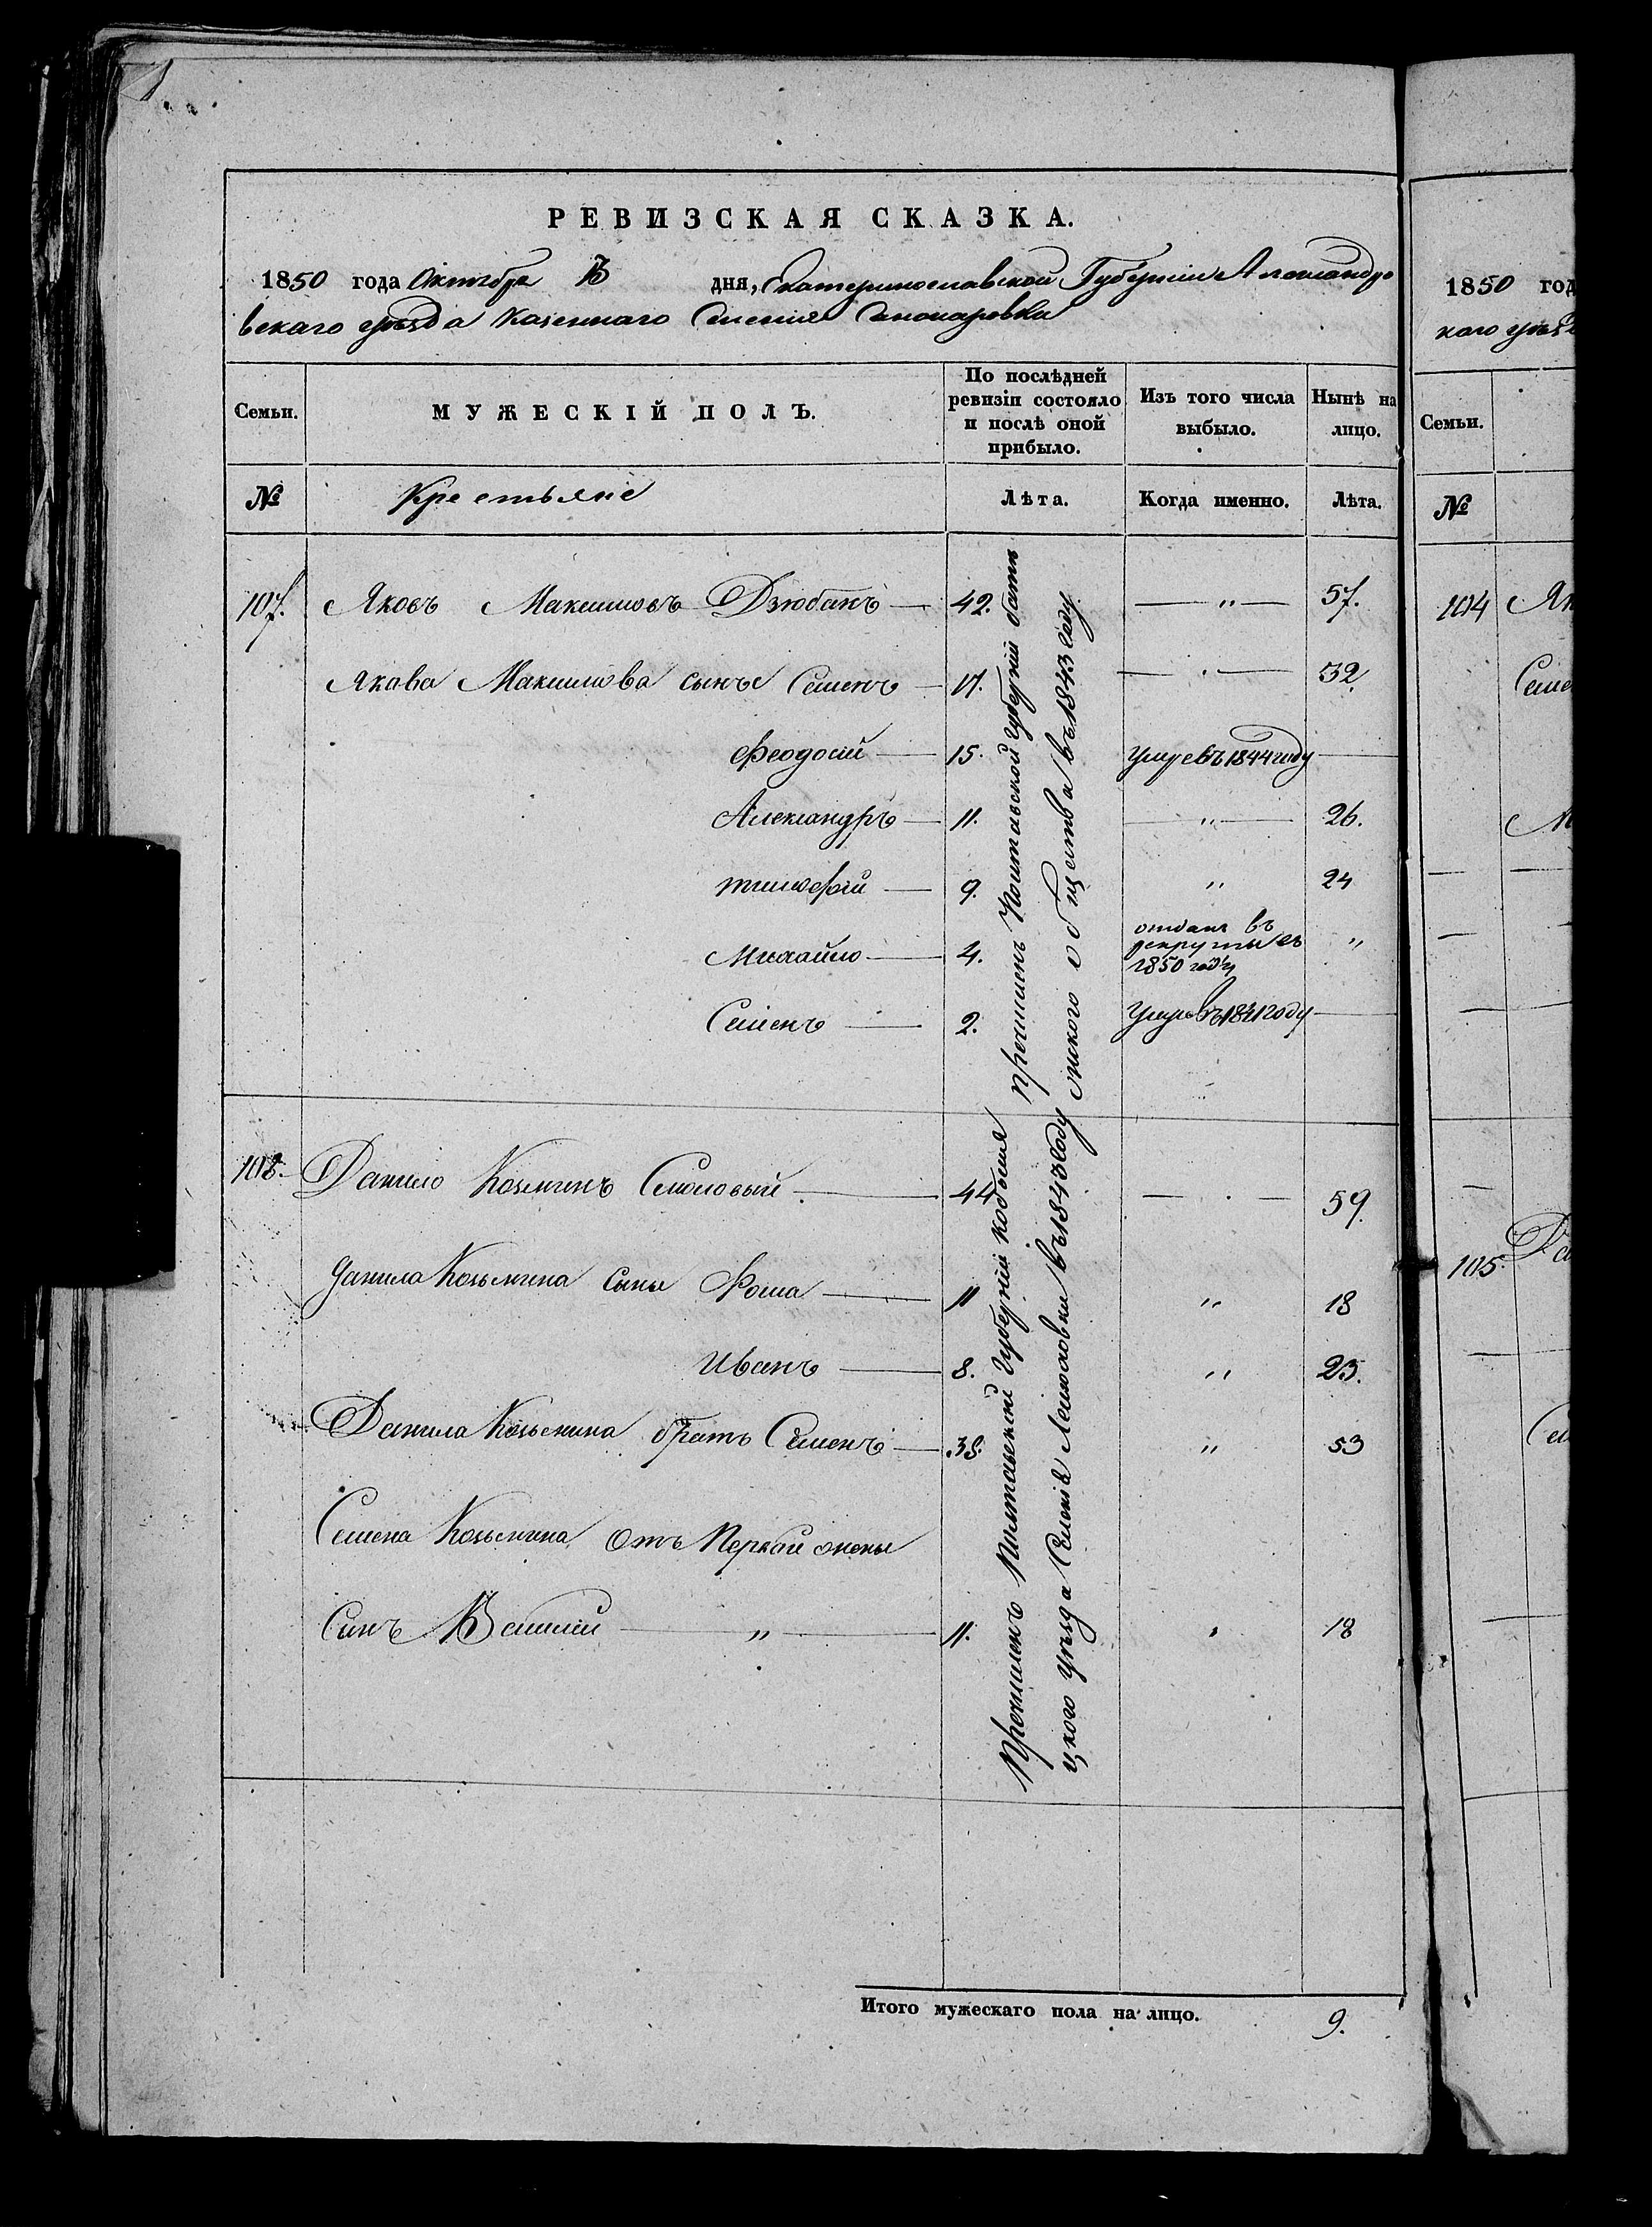 РЕВИЗСКАЯ СКАЗКА.
1850 года Октября дня, Екатеринославской Губерніи Александро
вскаго уѣзда Казеннаго Селенія
Семьи.
МУЖЕСКІЙ ПОЛЪ.
По послѣдней ревизіи состояло и послѣ оной прибыло.
Изъ того числа выбыло.
Нынѣ на лицо.
№ Крестьяне Лѣта. Когда именно. Лѣта.
107. Яковъ Максимовъ Дзюбанъ — 42. — " — 57.
Якова Максимова сынъе Семенъ — 17. — " — 32.
Феодосий — 15. Умре въ 1844 году —
Александръ — 11. — " — 26.
тимофій — 9. " 24
Михайло — 4. отданъ въ рекруты въ 1850 году "
Семенъ — 2. Умре въ 1841 году —
причисленъ Полтавской Губерніи
общества въ 1843 году
108. Данило Козминъ — 44 — . — 59.
Данила Козьмина сыны Фома — 11 " 18
Иванъ — 8. " 23.
Данила Козьмина братъ Семенъ — 38. " 53
Семена Козьмина отъ Первой жены
Синъ Василий — " — 11. " 18
Причисленъ Полтавской Губерніи кобеля
цкого уѣзда Селенія въ 1843 году
Итого мужескаго пола на лицо. 9.
1850 год
каго уѣзд
Семьи.
№
104 Як
Семе
М
105. Да
Сем